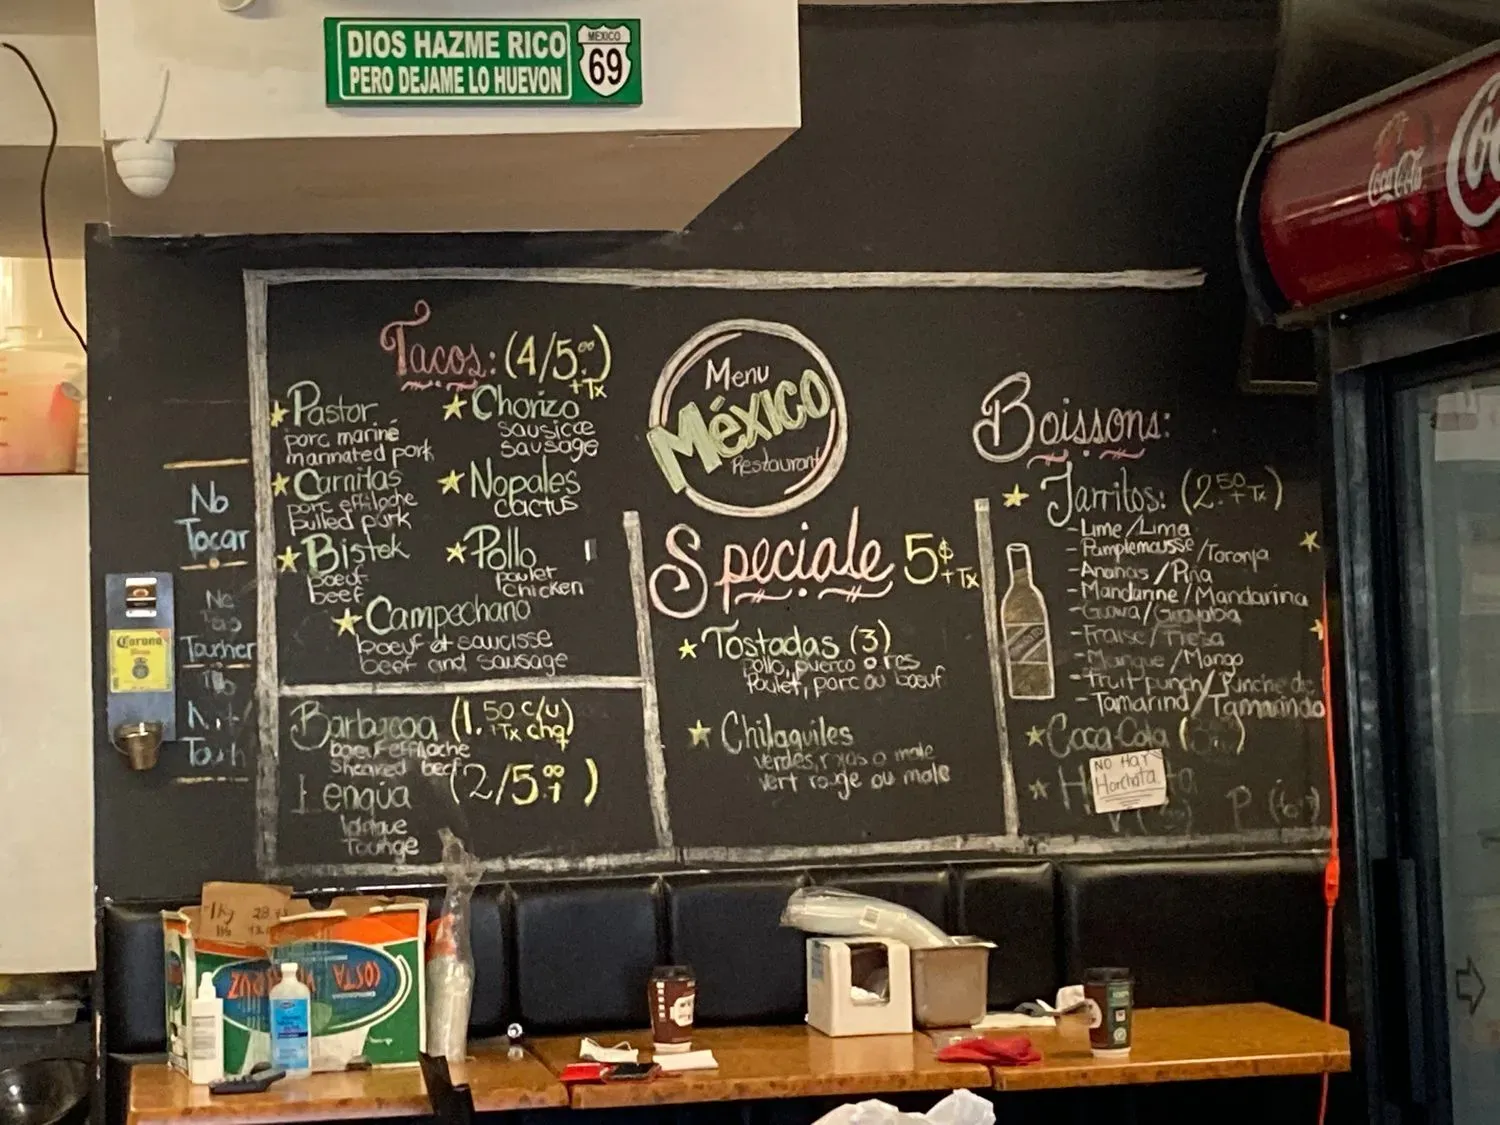 DIOS HAZME RICO
PERO DEJAME LO HUEVON
MEXICO
69
Coca-Cola
Tacos: (4/5.00)
+Tx
Pastor
porc mariné
marinated pork
Carnitas
porc effiloche
pulled pork
Bistek
boeuf
beef
Chorizo
sausicce
sausage
Nopales
cactus
Pollo
poulet
chicken
Campechano
boeuf et saucisse
beef and sausage
Barbacoa (1.50 c/u)
+Tx chq
boeuf effiloche
Sheared beef
(2/5.00)
Lengua
langue
Tounge
Menu
México
Restaurant
Speciale 5$
+Tx
Tostadas (3)
pollo, puerco o res
Poulet, porc ou boeuf
Chilaquiles
verdes, rojas o mole
vert rouge ou mole
Boissons:
Jarritos: (2.50
+Tx)
-Lime/Lima
-Pamplemousse/Toronja
-Ananas/Piña
-Mandarine/Mandarina
-Guava/Guayaba
-Fraise/Fresa
-Mangue/Mango
-Fruit punch/Punche de
-Tamarind/Tamarindo
Coca-Cola
NO HAY
Horchata
No
Tocar
Ne
Pas
Toucher
Touch
Corona
1kg 28.
COSTA